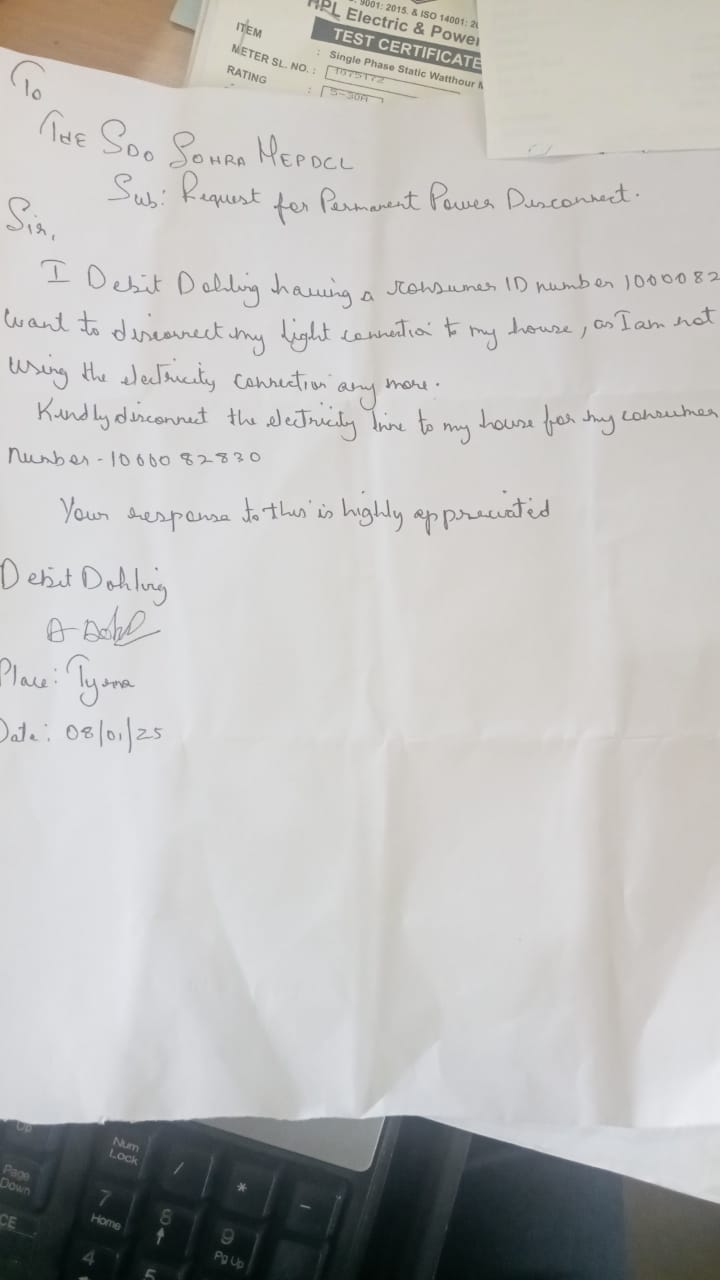 9001: 2015. & ISO 14001: 20
HPL Electric & Power
TEST CERTIFICATE
ITEM : Single Phase Static Watthour M
METER SL. NO. : 1075172
RATING : 5-30A
To
THE SDO SOHRA MEPDCL
Sub: Request for Permanent Power Disconnect.
Sir,
I Debit Dohling having a consumer ID number 1000082
want to disconnect my light connection to my house, as I am not
using the electricity connection any more.
Kindly disconnect the electricity line to my house for my consumer
number - 1000082830
Your response to this is highly appreciated
Debit Dohling
Place: Tyrna
Date: 08/01/25
Up
Num
Lock
/
*
-
Page
Down
7
Home
8
9
Pg Up
CE
4
5